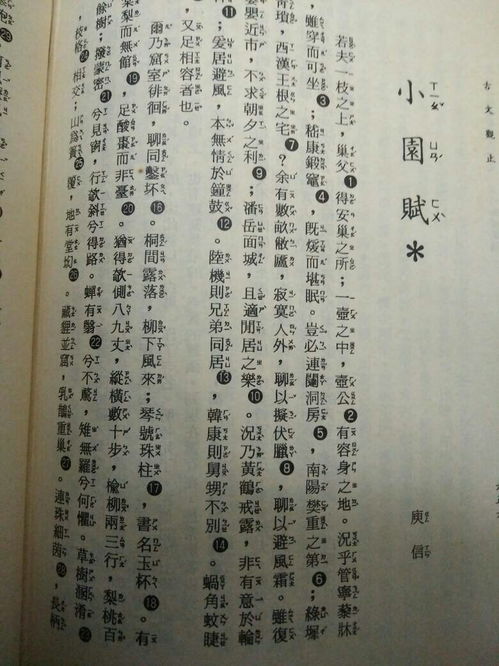 古文觀止
小園賦*
庾信
若夫一枝之上,巢父❶得安巢之所;一壺之中,壺公❷有容身之地。況乎管寧藜牀
,雖穿而可坐❸;嵇康鍛竈❹,既煖而堪眠。豈必連闥洞房❺,南陽樊重之第❻;綠墀
青瑣,西漢王根之宅❼?余有數畝敝廬,寂寞人外,聊以擬伏臘❽,聊以避風霜。雖復
晏嬰近市,不求朝夕之利❾;潘岳面城,且適閒居之樂❿。況乃黃鶴戒露,非有意於輪
⓫;爰居避風,本無情於鐘鼓⓬。陸機則兄弟同居⓭,韓康則舅甥不別⓮。蝸角蚊睫
,又足相容者也。
爾乃窟室徘徊,聊同鑿坏⓰。桐間露落,柳下風來;琴號珠柱⓱,書名玉杯⓲。有
棠梨而無館⓳,足酸棗而非臺⓴。猶得欹側八九丈,縱橫數十步,榆柳兩三行,梨桃百
餘樹;撥蒙密㉑兮見窗,行欹斜兮得路。蟬有翳㉒兮不驚,雉無羅兮何懼。草樹溷淆㉓
,枝格㉔相交;山為簣㉕覆,地有堂坳㉖。藏貍並窟,乳鵲重巢㉗。連珠細茵㉘,長柄